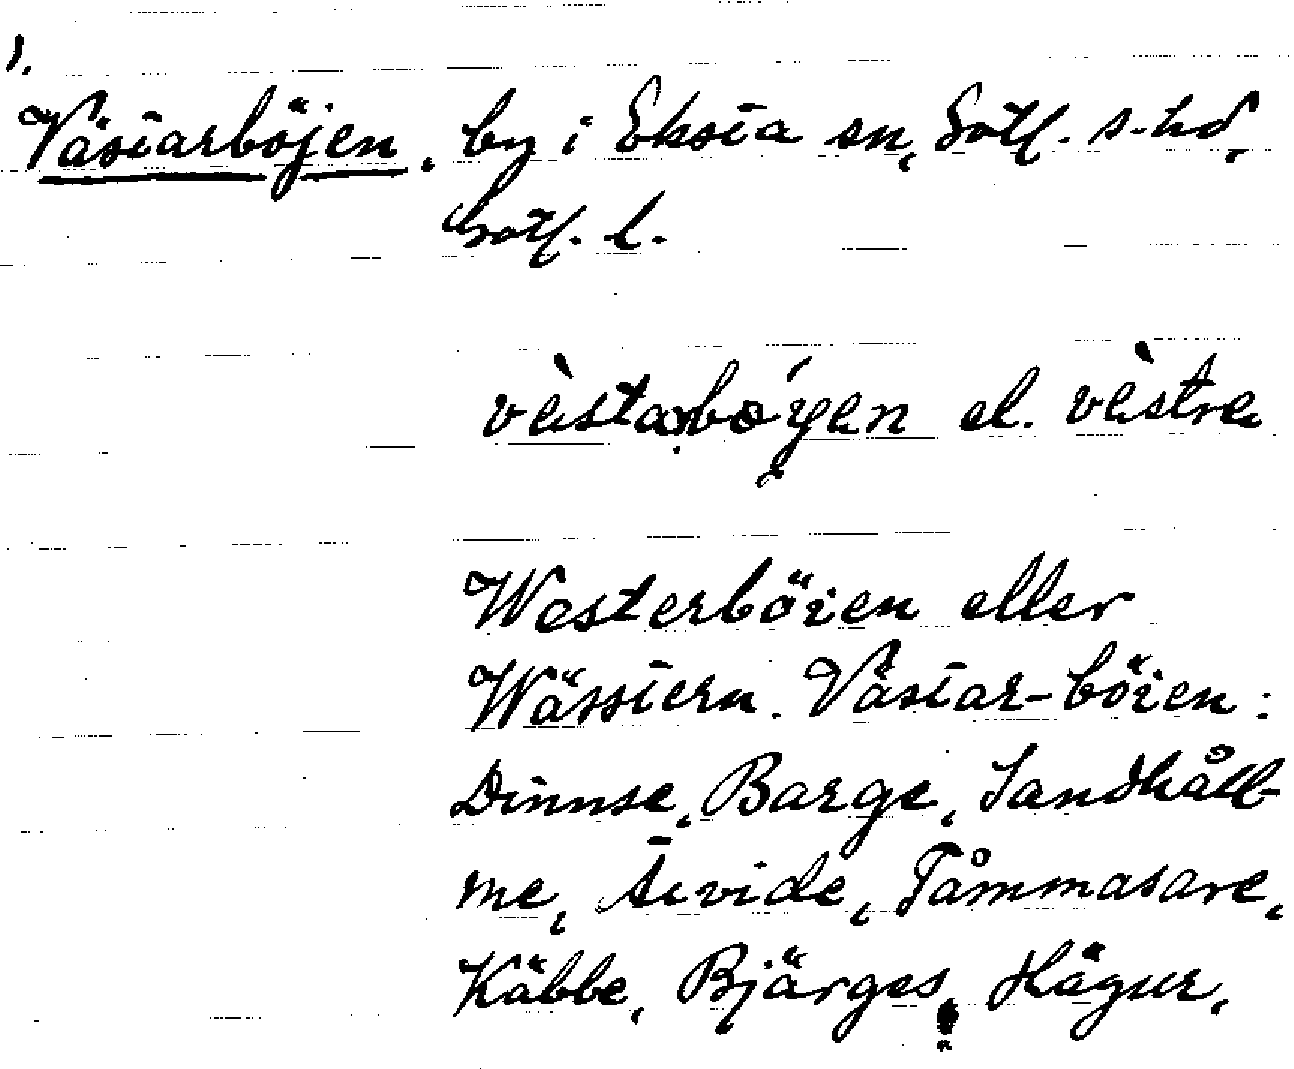 1.
Västarböjen, by i Eksta sn, Gotl. s. hd,
Gotl. l.
vèstarbǿyen el. vèstre
Westerböien eller
Wässtern. Västar-böien:
Dinnse, Barge, Sandhåll-
me, Aivide, Tåmmasare,
Käbbe, Bjärges, Hägur,